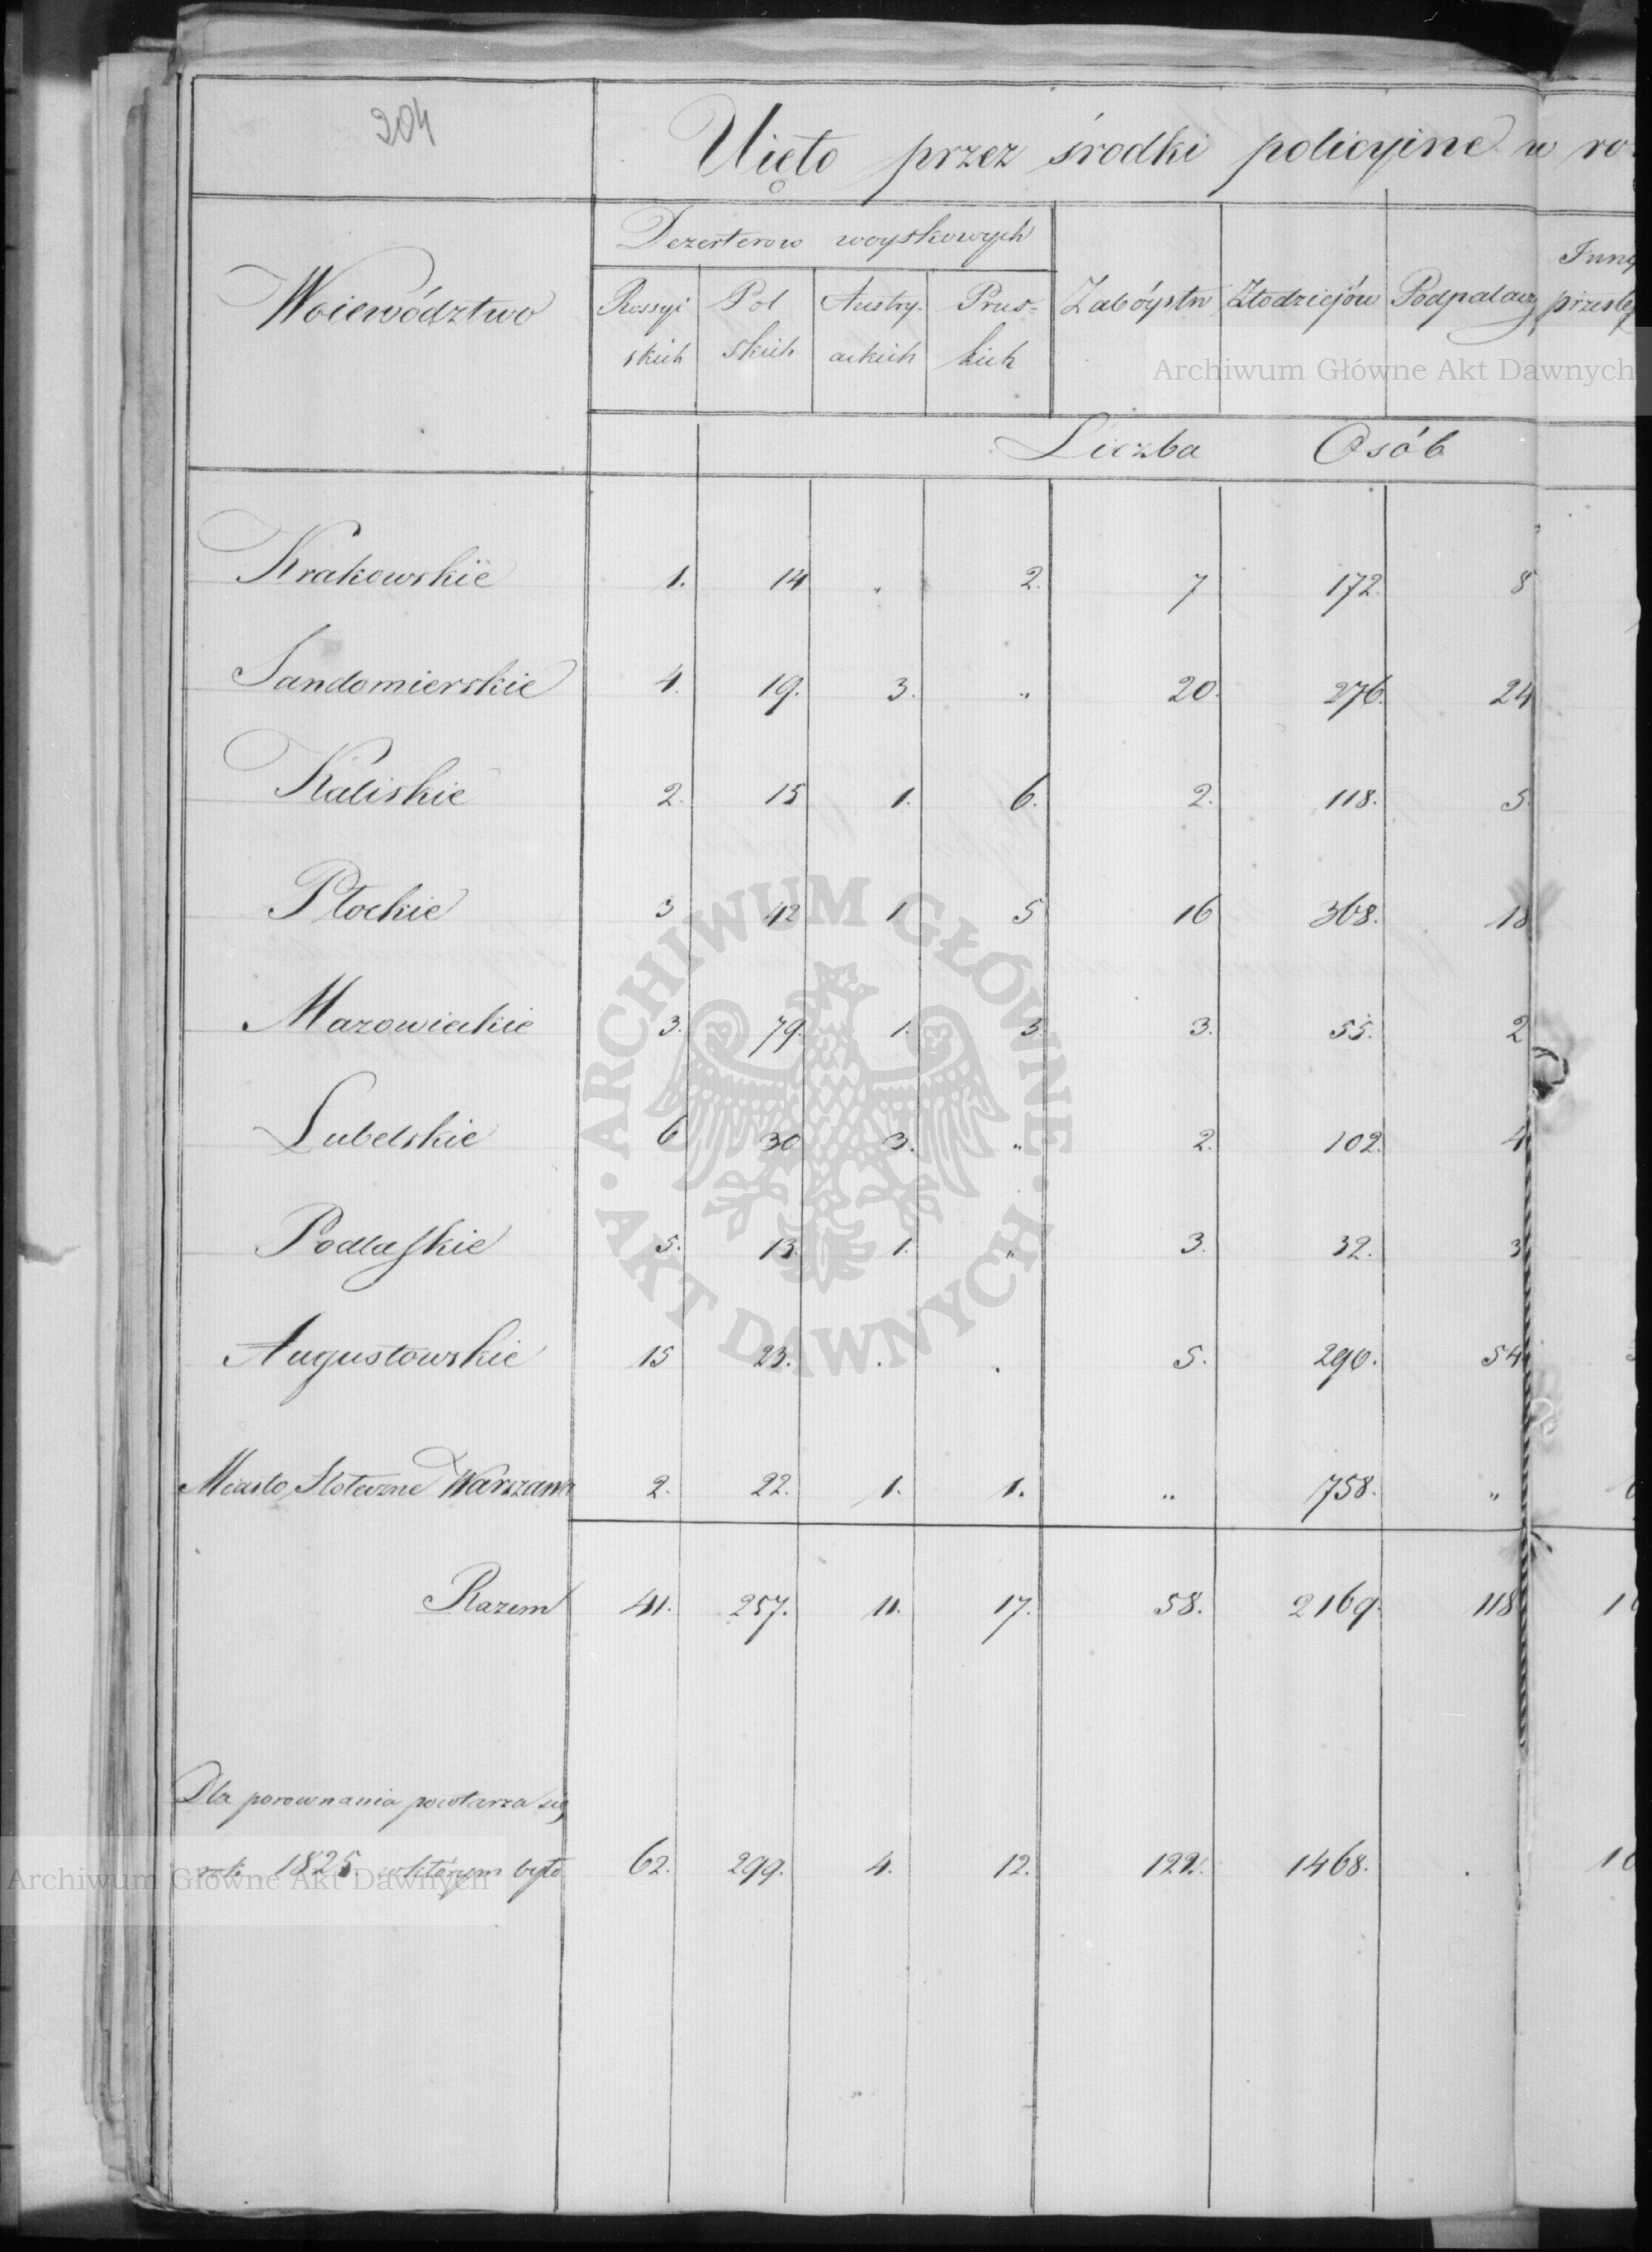 304
Uięto przez środki policyine w ro
Woiewództwo
Dezerterow woyskowych
Rossyi
skich
Pol
skich
Austry.
ackich
Prus-
kich
Zabóystw
Złodziejów
Podpalaczy
Inny
przestę
Liczba Osób
Krakowskie 1. 14 . 2. 7 172. 8
Sandomierskie 4. 19. 3. " 20. 276. 24
Kaliskie 2. 15 1. 6. 2. 118. 5.
Płockie 3 42 1 5 16 368. 18
Mazowieckie 3. 79. 1. 3. 3. 55. 2
Lubelskie 6 30 3. " 2. 102. 4
Podlaskie 5. 13. 1. " 3. 32. 3
Augustowskie 15 23. . . 5. 290. 54
Miasto Stołeczne Warszawa 2. 22. 1. 1. " 758. "
Razem 41. 257. 11. 17. 58. 2169. 118 1
Dla porownania powtarza się
rok 1825 w którym było 62. 299. 4. 12. 122. 1468. . 10
Archiwum Główne Akt Dawnych
ARCHIWUM GŁÓWNE
AKT DAWNYCH
Archiwum Główne Akt Dawnych